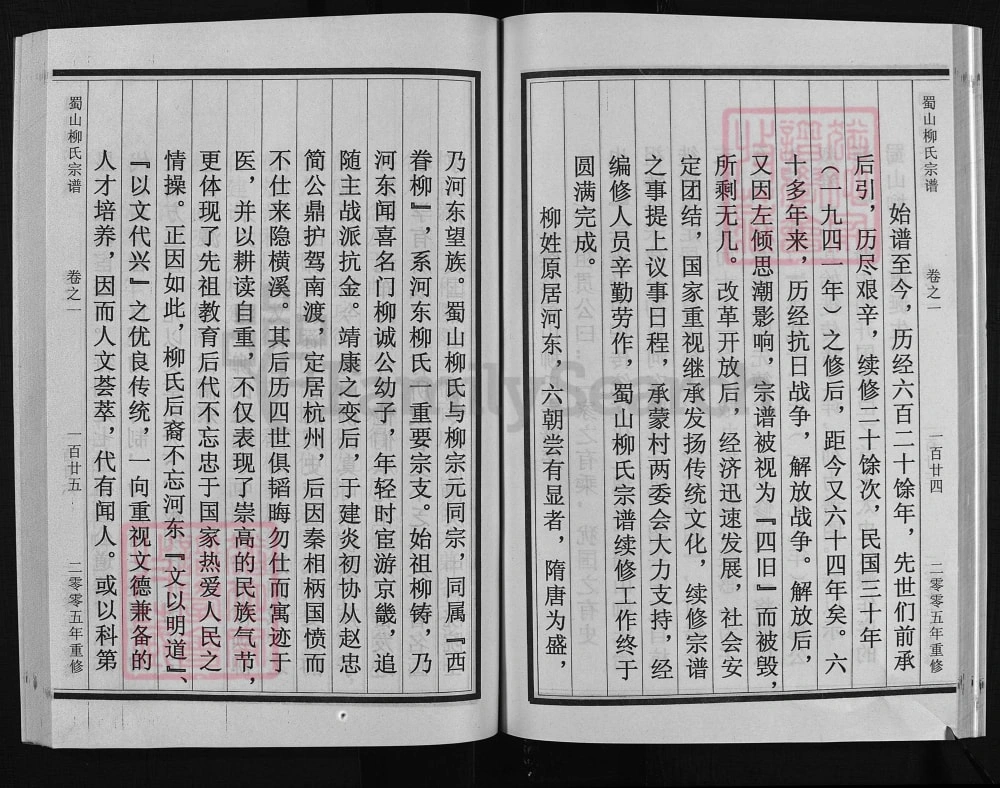 蜀山柳氏宗谱
卷之一
一百廿四
二零零五年重修
始谱至今，历经六百二十馀年，先世们前承
后引，历尽艰辛，续修二十馀次，民国三十年
（一九四一年）之修后，距今又六十四年矣。六
十多年来，历经抗日战争，解放战争。解放后，
又因左倾思潮影响，宗谱被视为『四旧』而被毁，
所剩无几。改革开放后，经济迅速发展，社会安
定团结，国家重视继承发扬传统文化，续修宗谱
之事提上议事日程，承蒙村两委会大力支持，经
编修人员辛勤劳作，蜀山柳氏宗谱续修工作终于
圆满完成。
柳姓原居河东，六朝尝有显者，隋唐为盛，
乃河东望族。蜀山柳氏与柳宗元同宗，同属『西
眷柳』，系河东柳氏一重要宗支。始祖柳铸，乃
河东闻喜名门柳诚公幼子，年轻时宦游京畿，追
随主战派抗金。靖康之变后，于建炎初协从赵忠
简公鼎护驾南渡，定居杭州，后因秦相柄国愤而
不仕来隐横溪。其后历四世俱韬晦勿仕而寓迹于
医，并以耕读自重，不仅表现了崇高的民族气节，
更体现了先祖教育后代不忘忠于国家热爱人民之
情操。正因如此，柳氏后裔不忘河东『文以明道』、
『以文代兴』之优良传统，一向重视文德兼备的
人才培养，因而人文荟萃，代有闻人。或以科第
蜀山柳氏宗谱
卷之一
一百廿五
二零零五年重修
FamilySearch